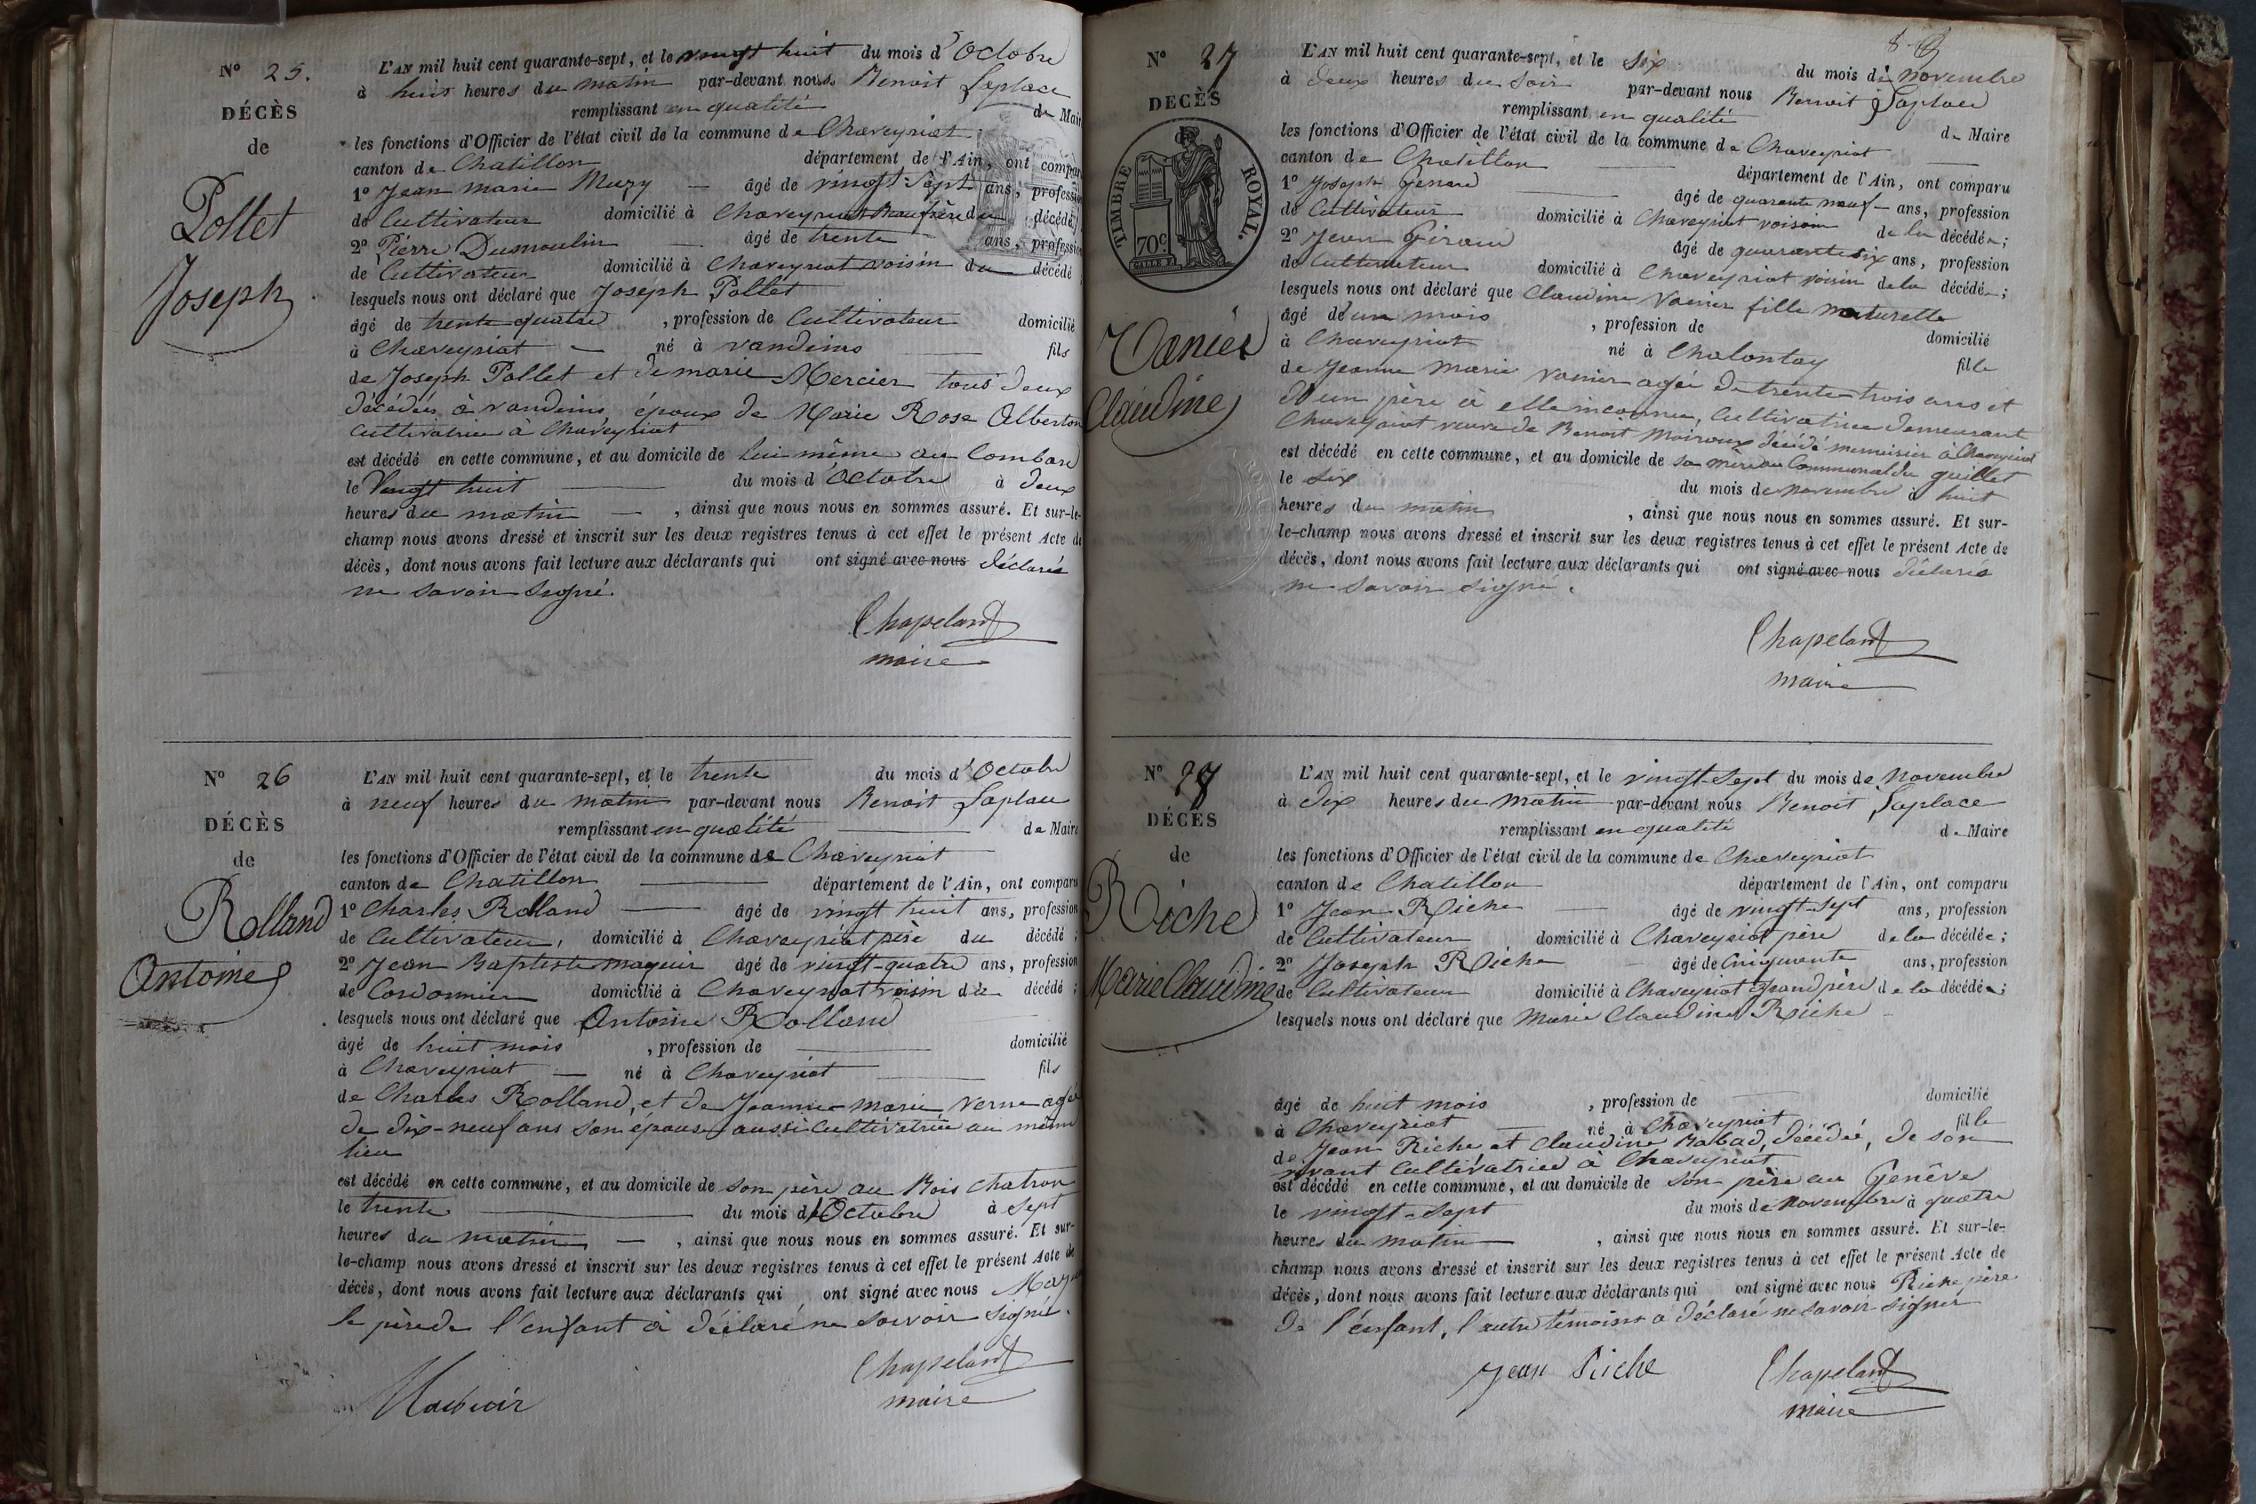 N° 25.
DÉCÈS
de
Pollet
Joseph
L'AN mil huit cent quarante-sept, et le vingt huit du mois d'Octobre
à huit heures du matin par-devant nous Benoit Laplace
remplissant en qualité de Maire
les fonctions d'Officier de l'état civil de la commune de Chaveyriat
canton de Chatillon département de l'Ain, ont comparu
1° Jean marie Mury âgé de vingt Sept ans, profession
de Cultivateur domicilié à Chaveyriat Beaufrère du décédé;
2° Pierre Dumoulin âgé de trente ans, profession
de Cultivateur domicilié à Chaveyriat voisin du décédé
lesquels nous ont déclaré que Joseph Pollet
âgé de trente quatre , profession de Cultivateur domicilié
à Chaveyriat né à vandeins fils
de Joseph Pollet et de marie Mercier tous deux
décédés à vandeins, époux de Marie Rose Alberton
Cultivatrice à Chaveyriat
est décédé en cette commune, et au domicile de lui même au Combard
le Vingt huit du mois d'Octobre à deux
heures du matin , ainsi que nous nous en sommes assuré. Et sur-le-
champ nous avons dressé et inscrit sur les deux registres tenus à cet effet le présent Acte de
décès, dont nous avons fait lecture aux déclarants qui ont signé avec nous déclaré
ne savoir signé.
Chapeland
maire
N° 26
DÉCÈS
de
Rolland
Antoine
L'AN mil huit cent quarante-sept, et le trente du mois d'Octobre
à neuf heures du matin par-devant nous Benoit Laplace
remplissant en qualité de Maire
les fonctions d'Officier de l'état civil de la commune de Chaveyriat
canton de Chatillon département de l'Ain, ont comparu
1° Charles Rolland âgé de vingt huit ans, profession
de Cultivateur, domicilié à Chaveyriat père du décédé;
2° Jean Baptiste maguir âgé de vingt-quatre ans, profession
de Cordonnier domicilié à Chaveyriat voisin du décédé;
lesquels nous ont déclaré que Antoine Rolland
âgé de huit mois , profession de domicilié
à Chaveyriat né à Chaveyriat fils
de Charles Rolland, et de Jeanne marie Verne agée
de dix-neuf ans son épouse aussi Cultivatrice au même
lieu
est décédé en cette commune, et au domicile de son père au Bois chatron
le trente du mois d'Octobre à sept
heures du matin , ainsi que nous nous en sommes assuré. Et sur-
le-champ nous avons dressé et inscrit sur les deux registres tenus à cet effet le présent Acte de
décès, dont nous avons fait lecture aux déclarants qui ont signé avec nous
le père de l'enfant à déclaré ne savoir signé.
Chapeland
maire
N° 27
DÉCÈS
TIMBRE ROYAL.
70c
Vanier
Claudine
L'AN mil huit cent quarante-sept, et le six du mois de novembre
à deux heures du soir par-devant nous Benoit Laplace
remplissant en qualité de Maire
les fonctions d'Officier de l'état civil de la commune de Chaveyriat
canton de Chatillon département de l'Ain, ont comparu
1° Joseph Genard âgé de quarente neuf ans, profession
de Cultivateur domicilié à Chaveyriat voisin de la décédée;
2° Jean Giraud âgé de quarante six ans, profession
de Cultivateur domicilié à Chaveyriat voisin de la décédée;
lesquels nous ont déclaré que Claudine Vanier fille naturelle
âgé de un mois , profession de domicilié
à Chaveyriat né à Chalontay fille
de Jeanne Marie Vanier agée de trente trois ans et
d'un père à elle inconnu, Cultivatrice demeurant
Chaveyriat veuve de Benoit Moiroux décédé menuisier à Chaveyriat
est décédé en cette commune, et au domicile de sa mère au Communal du guillet
le six du mois de novembre à huit
heures du matin , ainsi que nous nous en sommes assuré. Et sur-
le-champ nous avons dressé et inscrit sur les deux registres tenus à cet effet le présent Acte de
décès, dont nous avons fait lecture aux déclarants qui ont signé avec nous déclaré
ne savoir signé.
Chapeland
maire
N° 28
DÉCÈS
de
Riche
Marie Claudine
L'AN mil huit cent quarante-sept, et le vingt-sept du mois de novembre
à dix heures du matin par-devant nous Benoit Laplace
remplissant en qualité de Maire
les fonctions d'Officier de l'état civil de la commune de Chaveyriat
canton de Chatillon département de l'Ain, ont comparu
1° Jean Riche âgé de vingt-sept ans, profession
de Cultivateur domicilié à Chaveyriat père de la décédée;
2° Joseph Riche âgé de Cinquante ans, profession
de Cultivateur domicilié à Chaveyriat grand père de la décédée;
lesquels nous ont déclaré que Marie Claudine Riche
âgé de huit mois , profession de domicilié
à Chaveyriat né à Chaveyriat fille
de Jean Riche et Claudine Rabad, décédée, de son
vivant Cultivatrice à Chaveyriat
est décédé en cette commune, et au domicile de son père au Genève
le vingt-sept du mois de novembre à quatre
heures du matin , ainsi que nous nous en sommes assuré. Et sur-le-
champ nous avons dressé et inscrit sur les deux registres tenus à cet effet le présent Acte de
décès, dont nous avons fait lecture aux déclarants qui ont signé avec nous Riche père
de l'enfant, l'autre témoins a déclaré ne savoir signer
Jean Riche
Chapeland
maire